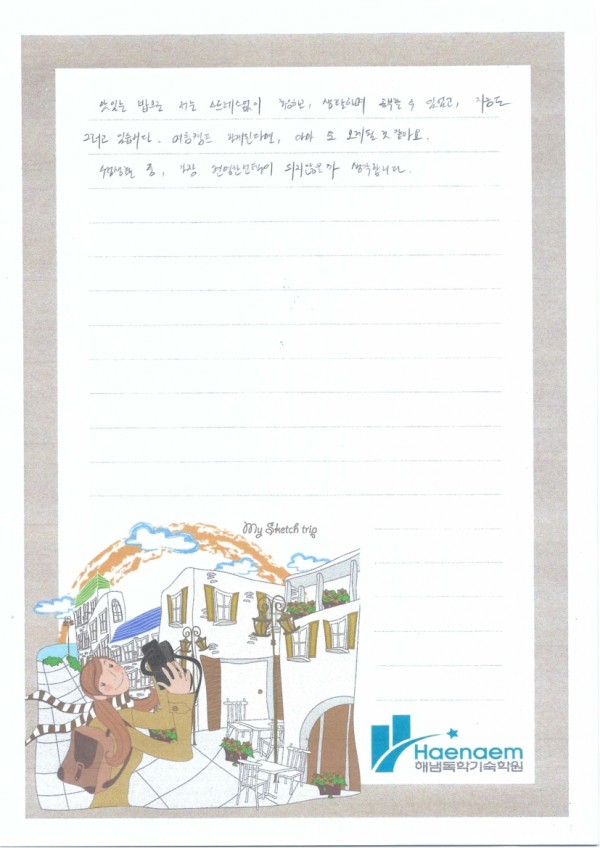 맛있는 밥으로 저는 스트레스없이 하였고, 생활하며 했을 수 있었고, 지금도
그러고 있습니다. 여름캠프 관계된다면, 아마 또 오게될 것 같아요.
수험생활 중, 가장 현명한선택이 되지않을까 생각합니다.
My Sketch trip
Haenaem
해냄독학기숙학원